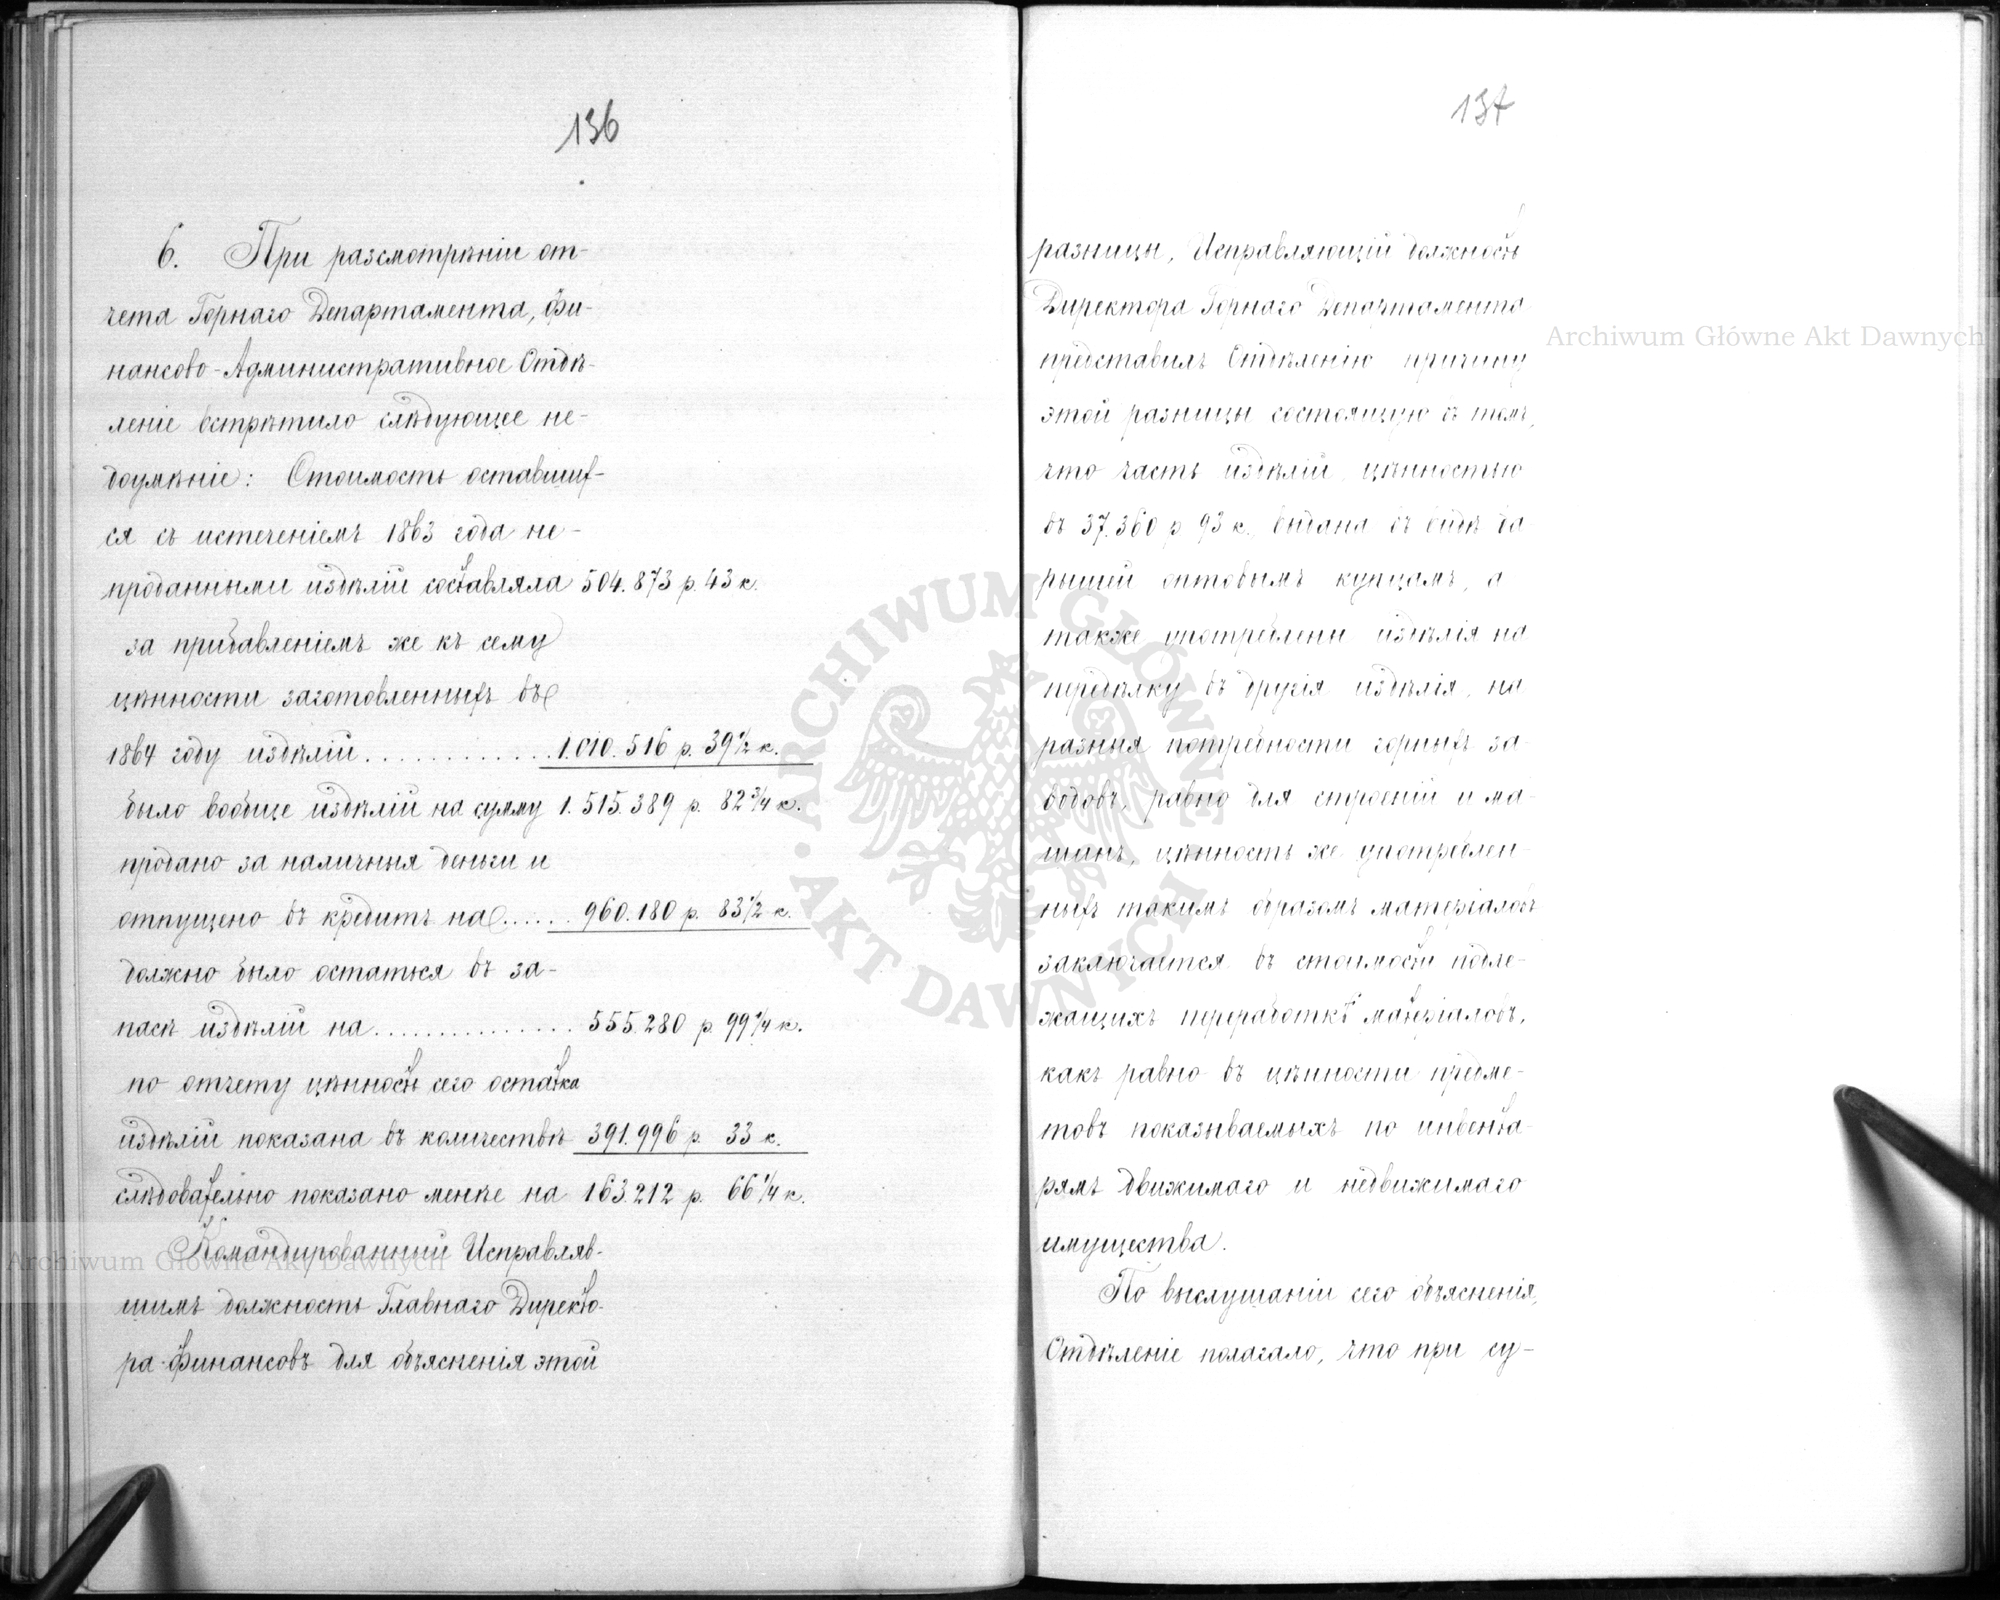 136
6. При разсмотрѣніи от-
чета Горнаго Департамента, Фи-
нансово-Административное Отдѣ-
леніе встрѣтило слѣдующее не-
доумѣніе: Стоимость оставших-
ся съ истеченіемъ 1863 года не-
проданными издѣлій составляла 504.873 р. 43 к.
за прибавленіемъ же къ сему
цѣнности заготовленныхъ въ
1864 году издѣлій.............1.010.516 р. 39 1/2 к.
было вообще издѣлій на сумму 1.515.389 р. 82 3/4 к.
продано за наличныя деньги и
отпущено въ кредитъ на...... 960.180 р. 83 1/2 к.
должно было остаться въ за-
пасѣ издѣлій на............... 555.280 р. 99 1/4 к.
по отчету цѣнность сего остатка
издѣлій показана въ количествѣ 391.996 р. 33 к.
слѣдовательно показано менѣе на 163.212 р. 66 1/4 к.
Командированный Исправляв-
шимъ должность Главнаго Директо-
ра Финансовъ для объясненія этой
137
разницы, Исправляющій должность
Директора Горнаго Департамента
представилъ Отдѣленію причину
этой разницы состоящую въ томъ,
что часть издѣлій цѣнностью
въ 37.360 р 93 к. выдана въ видѣ ба-
рышей оптовымъ купцамъ, а
также употреблены издѣлія на
передѣлку въ другія издѣлія, на
разныя потребности горныхъ за-
водовъ, равно для строеній и ма-
шинъ, цѣнность же употреблен-
ныхъ такимъ образомъ матеріаловъ
заключается въ стоимости подле-
жащихъ переработкѣ матеріаловъ,
какъ равно въ цѣнности предме-
товъ показываемыхъ по инвента-
рямъ движимаго и недвижимаго
имущества.
По выслушаніи сего объясненія,
Отдѣленіе полагало, что при су-
Archiwum Główne Akt Dawnych
Archiwum Główne Akt Dawnych
ARCHIWUM GŁÓWNE AKT DAWNYCH